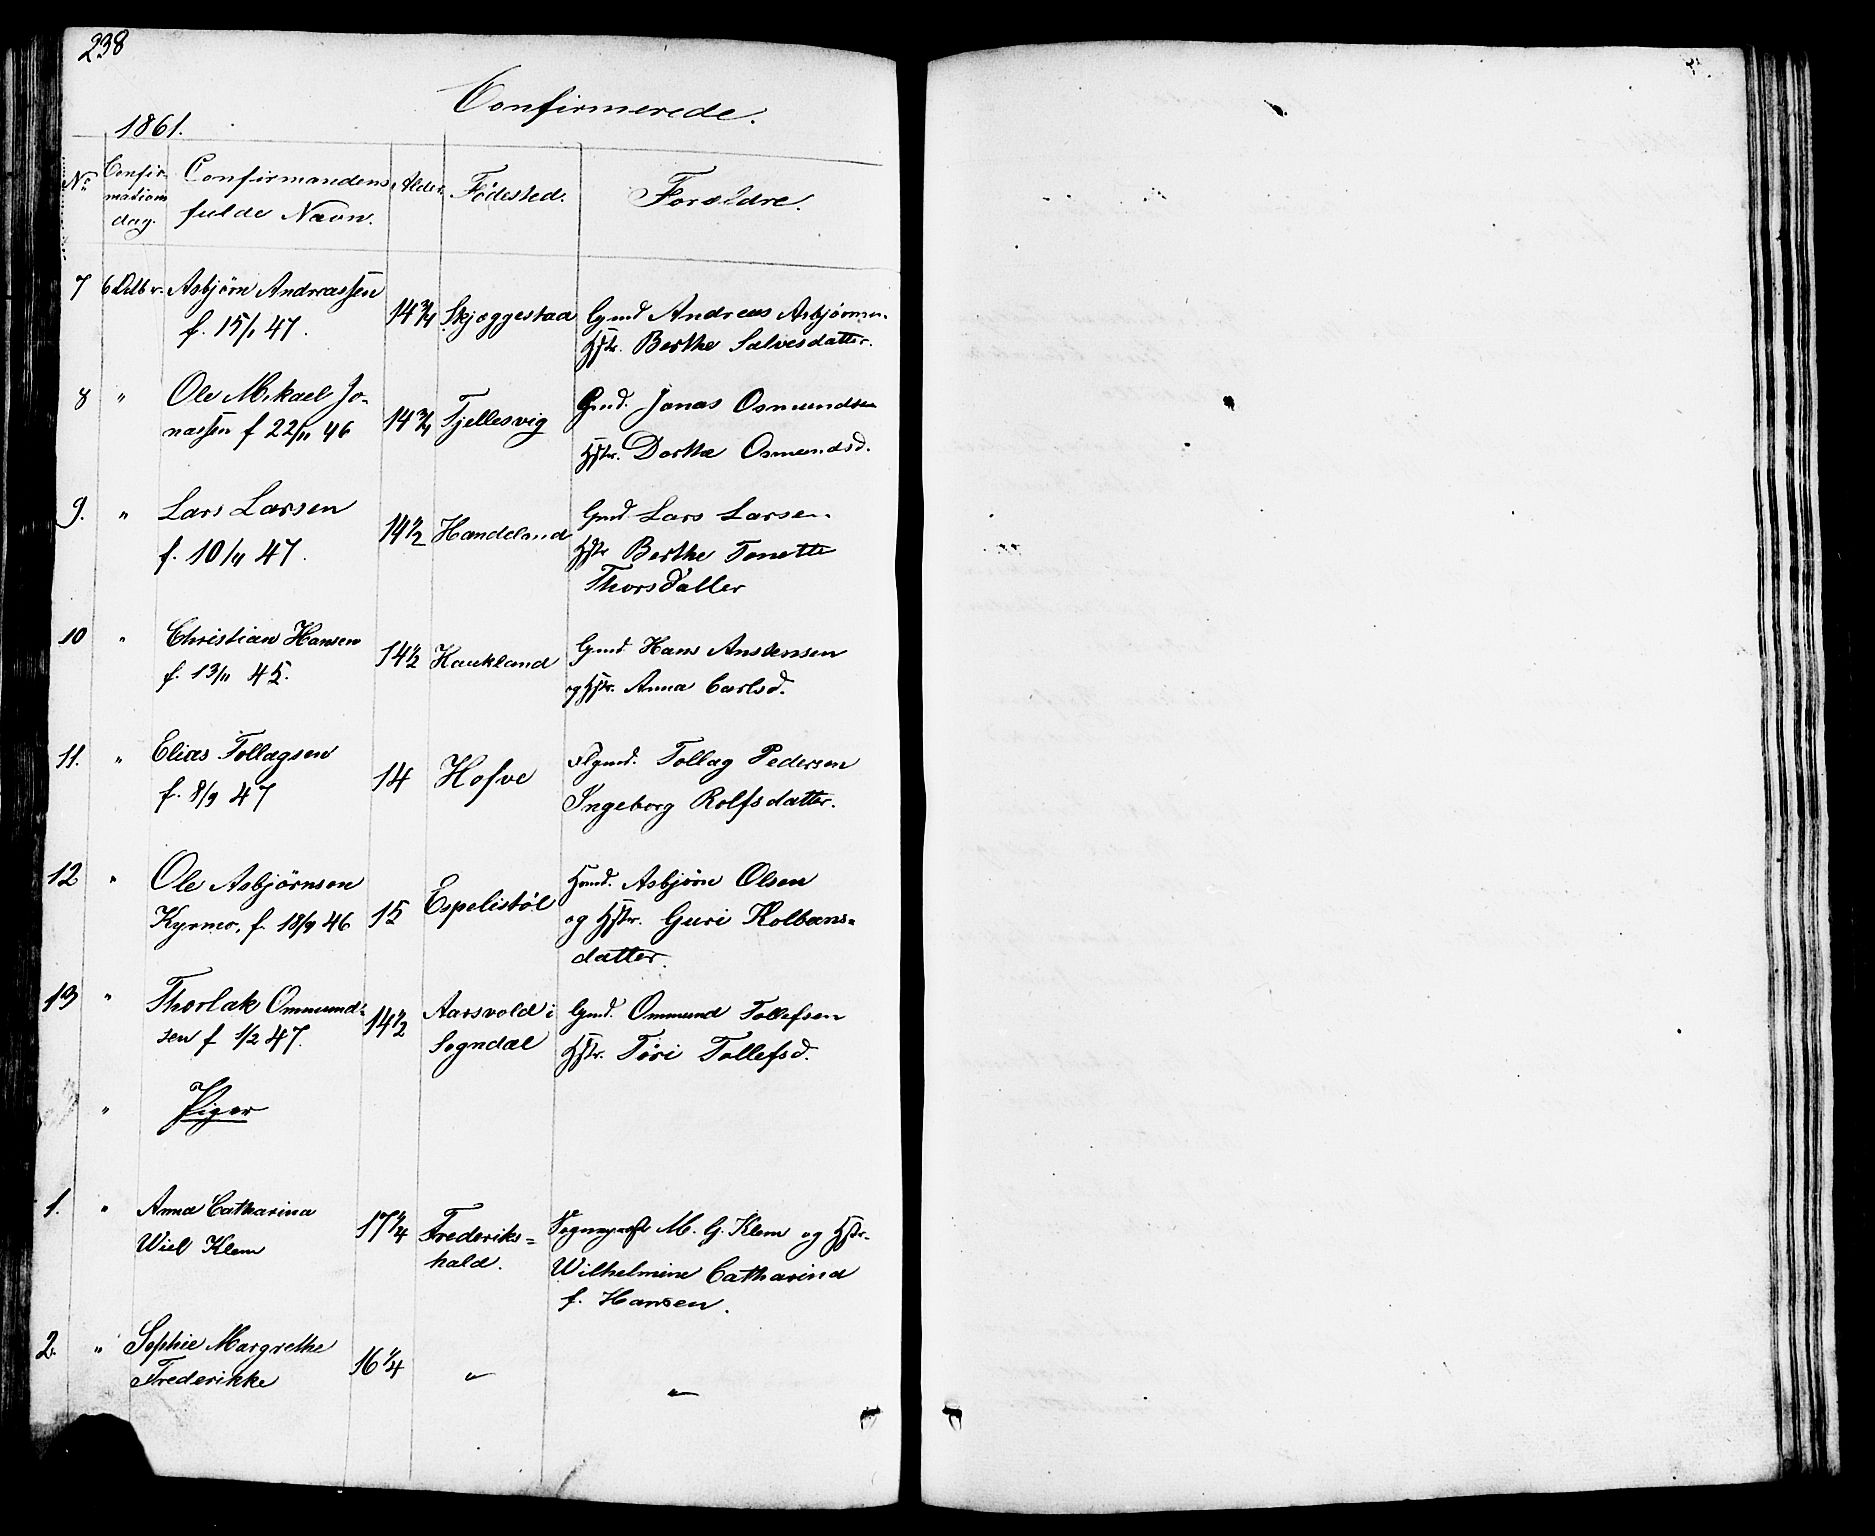 238
Confirmerede.
1861.
No Confir- Confirmandens Alder. Födested. Forældre.
mations fulde Navn.
dag.
7 6 Octbr. Asbjörn Andreassen 14 3/4 Skjæggestad Gmd Andreas Asbjörnsen
f. 15/1 47. Hstr. Berthe Salvesdatter.
8 " Ole Mikael Jo- 14 3/4 Fjellesvig Gmd. Jonas Osmundsen
nassen f 22/11 46 Hstr. Dorthe Osmundsd.
9. " Lars Larsen 14 1/2 Handeland Gmd. Lars Larsen
f. 10/4 47. Hstr Berthe Tonette
Thorsdatter
10 " Christian Hansen 14 1/2 Haukland Gmd Hans Anstensen
f. 13/11 45. og Hstr. Anna Carlsd.
11. " Elias Tollagsen 14 Hofve Flgmd. Tollag Pedersen
f. 8/9 47 Ingeborg Rolfsdatter.
12 " Ole Asbjörnsen 15 Espelistöl Hmd. Asbjörn Olsen
Kyrmo, f. 18/9 46 og Hstr. Guri Kolbens-
datter.
13 " Thorlak Ommund- 14 1/2 Aarsvold i Gmd. Ommund Tollefsen
sen f 1/2 47. Sogndal Hstr. Töri Tollefsd.
" Piger
1. " Anna Catharina 17 1/4 Frederiks- Sogneprest M. G. Klem og Hstr.
Wiel Klem hald. Wilhelmine Catharina
f. Hansen.
2. " Sophie Margrethe 16 1/4 " "
Frederikke